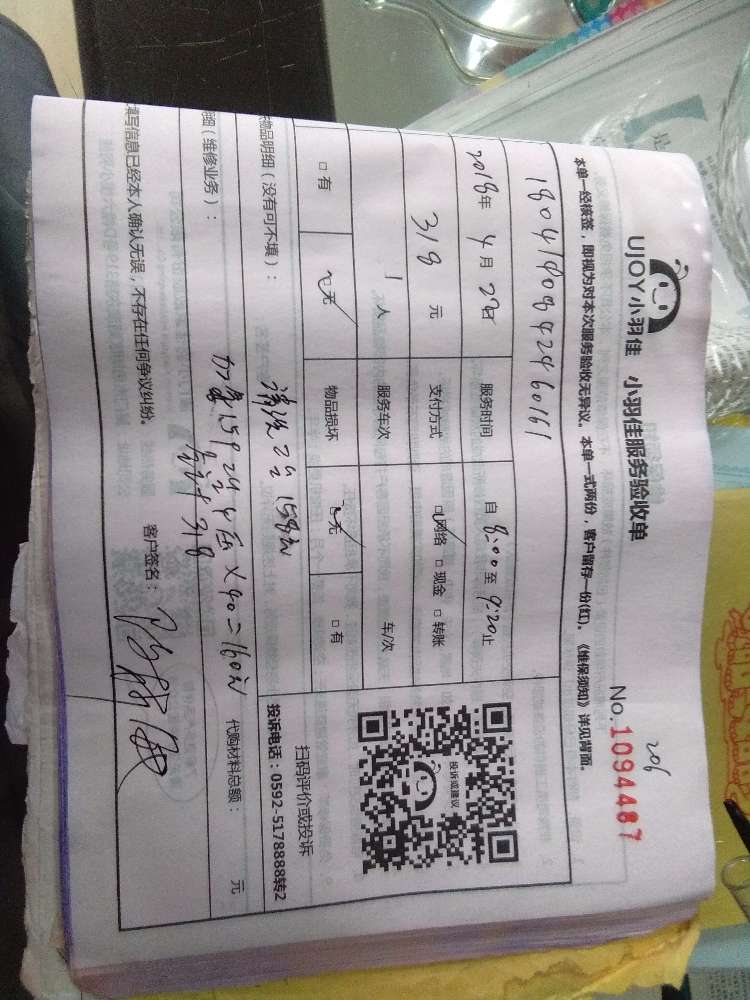 UJOY小羽佳 小羽佳服务验收单
206
No.1094487
本单一经核签，即视为对本次服务验收无异议。本单一式两份，客户留存一份(红)。《维保须知》详见背面。
2018年 4月 22日 服务时间 自 8:00 至 9:20 止
318 元 支付方式 网络 □ 现金 □ 转账
1 人 服务车次 车/次
□ 有 无 物品损坏 无 □ 有
投诉或建议
扫码评价或投诉
投诉电话：0592-5178888转2
物品明细（没有可不填）： 清洗2台 158元
细（维修业务）：
=160元
合计 318
代购材料总额： 元
填写信息已经本人确认无误，不存在任何争议纠纷。 客户签名：